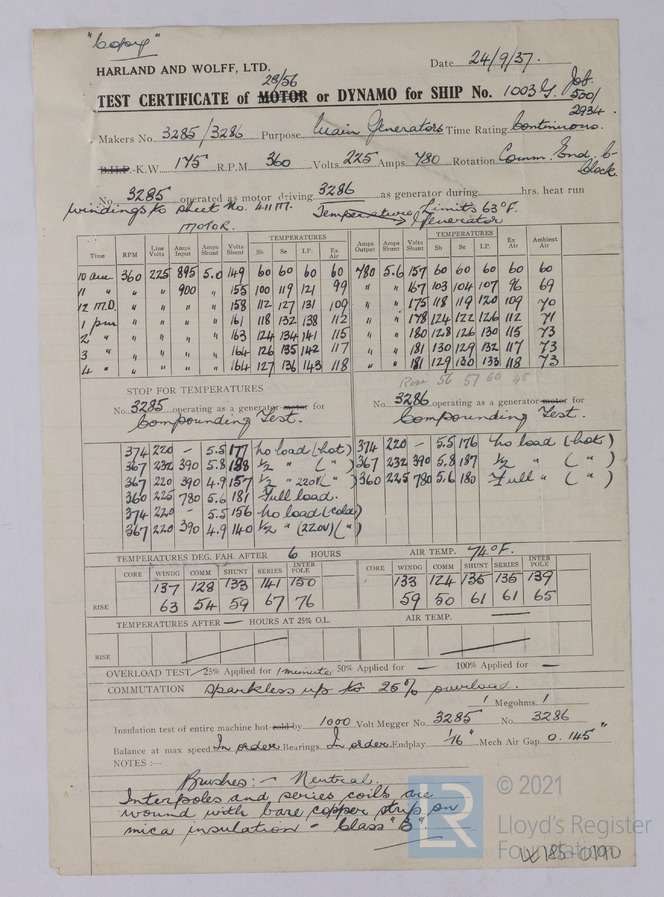 "Copy"
HARLAND AND WOLFF, LTD.
Date 24/9/37.
28/56
TEST CERTIFICATE of MOTOR or DYNAMO for SHIP No. 1003 G. Job 500/2934
Makers No. 3285/3286 Purpose Main Generators Time Rating Continuous.
B.H.P. K.W. 175 R.P.M. 360 Volts 225 Amps 780 Rotation Comm. End c- clock.
No. 3285 operated as motor driving 3286 as generator during hrs. heat run
Windings to sheet No. 411 M. Temperature Limits 63°F.
MOTOR. Generator
TEMPERATURES TEMPERATURES
Time RPM Line Volts Amps Input Amps Shunt Volts Shunt Sh Se I.P. Ex Air Amps Output Amps Shunt Volts Shunt Sh Se I.P. Ex Air Ambient Air
10 am 360 225 895 5.0 149 60 60 60 60 780 5.6 157 60 60 60 60 60
11 " " " 900 " 155 100 119 121 99 " " 167 103 104 107 96 69
12 M.D. " " " 158 112 127 131 109 " " 175 118 119 120 109 70
1 pm " " " 161 118 132 138 112 " " 178 124 122 126 112 71
2 " " " " 163 124 134 141 115 " " 180 128 126 130 115 73
3 " " " " 164 126 135 142 117 " " 181 130 129 132 117 73
4 " " " " 164 127 136 143 118 " " 181 129 130 133 118 73
Rise 56 57 60 45
STOP FOR TEMPERATURES
No. 3285 operating as a generator motor for No. 3286 operating as a generator motor for
Compounding Test. Compounding Test.
374 220 - 5.5 177 No load (hot) 374 220 - 5.5 176 No load (hot)
367 232 390 5.8 188 1/2 " ( " ) 367 232 390 5.8 187 1/2 " ( " )
367 220 390 4.9 157 1/2 " 220V ( " ) 360 225 780 5.6 180 Full " ( " )
360 225 780 5.6 181 Full load.
374 220 - 5.5 156 No load (cold)
367 220 390 4.9 140 1/2 " (220V) ( " )
TEMPERATURES DEG. FAH. AFTER 6 HOURS AIR TEMP. 74°F.
CORE WINDG COMM SHUNT SERIES INTER POLE CORE WINDG COMM SHUNT SERIES INTER POLE
137 128 133 141 150 133 124 135 135 139
RISE 63 54 59 67 76 59 50 61 61 65
TEMPERATURES AFTER — HOURS AT 25% O.L. AIR TEMP. —
RISE
OVERLOAD TEST 25% Applied for 1 minute 50% Applied for — 100% Applied for —
COMMUTATION Sparkless up to 25% overload.
1 Megohms. 1
Insulation test of entire machine hot cold by 1000 Volt Megger No. 3285 No. 3286
Balance at max speed In order Bearings. In order Endplay 1/16" Mech Air Gap 0.145"
NOTES :—
Brushes:- Neutral.
Interpoles and series coils are
wound with bare copper strip on
mica insulation - Class "B".
LR
© 2021
Lloyd's Register
Foundation
W185-0190